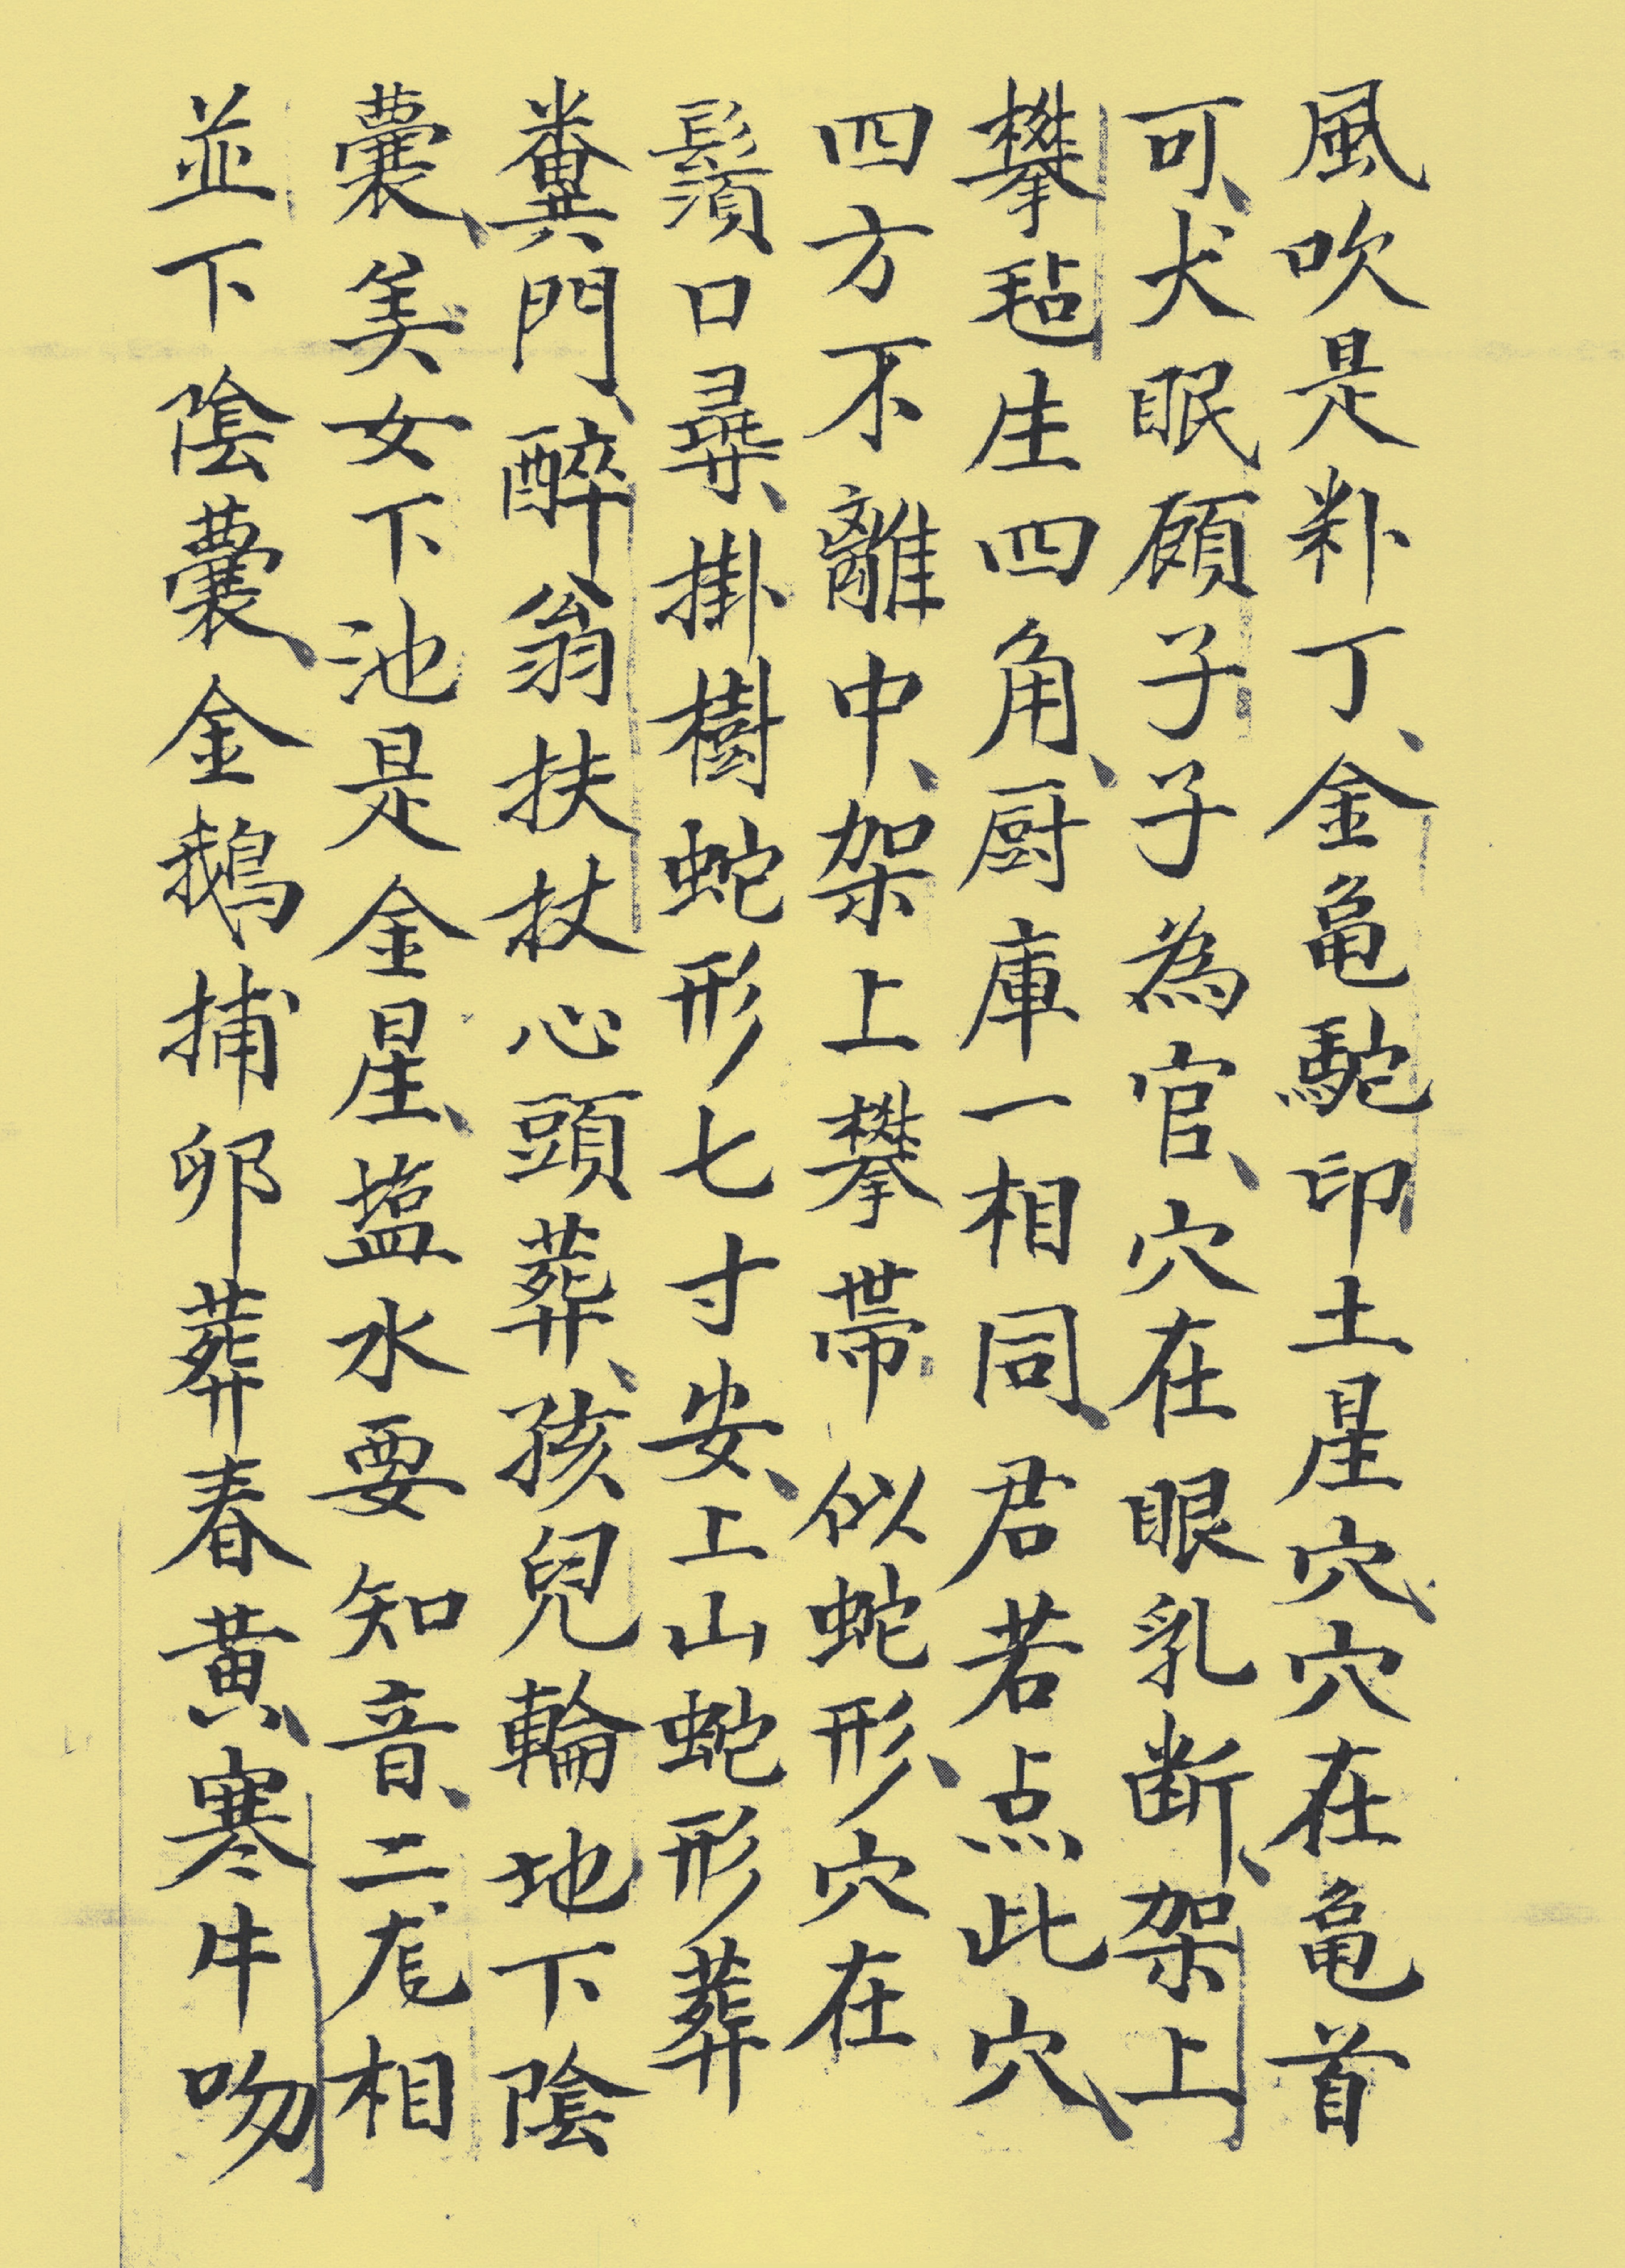 風吹是粁丁、金亀駝印土星穴、穴在亀首
可、犬眠顧子子為官、穴在眼乳断、架上
攀毡生四角、厨庫一相同、君若点此穴、
四方不離中、架上攀帶似蛇形、穴在
鬚口尋、掛樹蛇形七寸安、上山蛇形葬
糞門、醉翁扶杖心頭葬、孩兒輪地下陰
囊、美女下池是金星、塩水要知音、二龙相
並下陰囊、金鵝捕卵葬春黃、寒牛吻